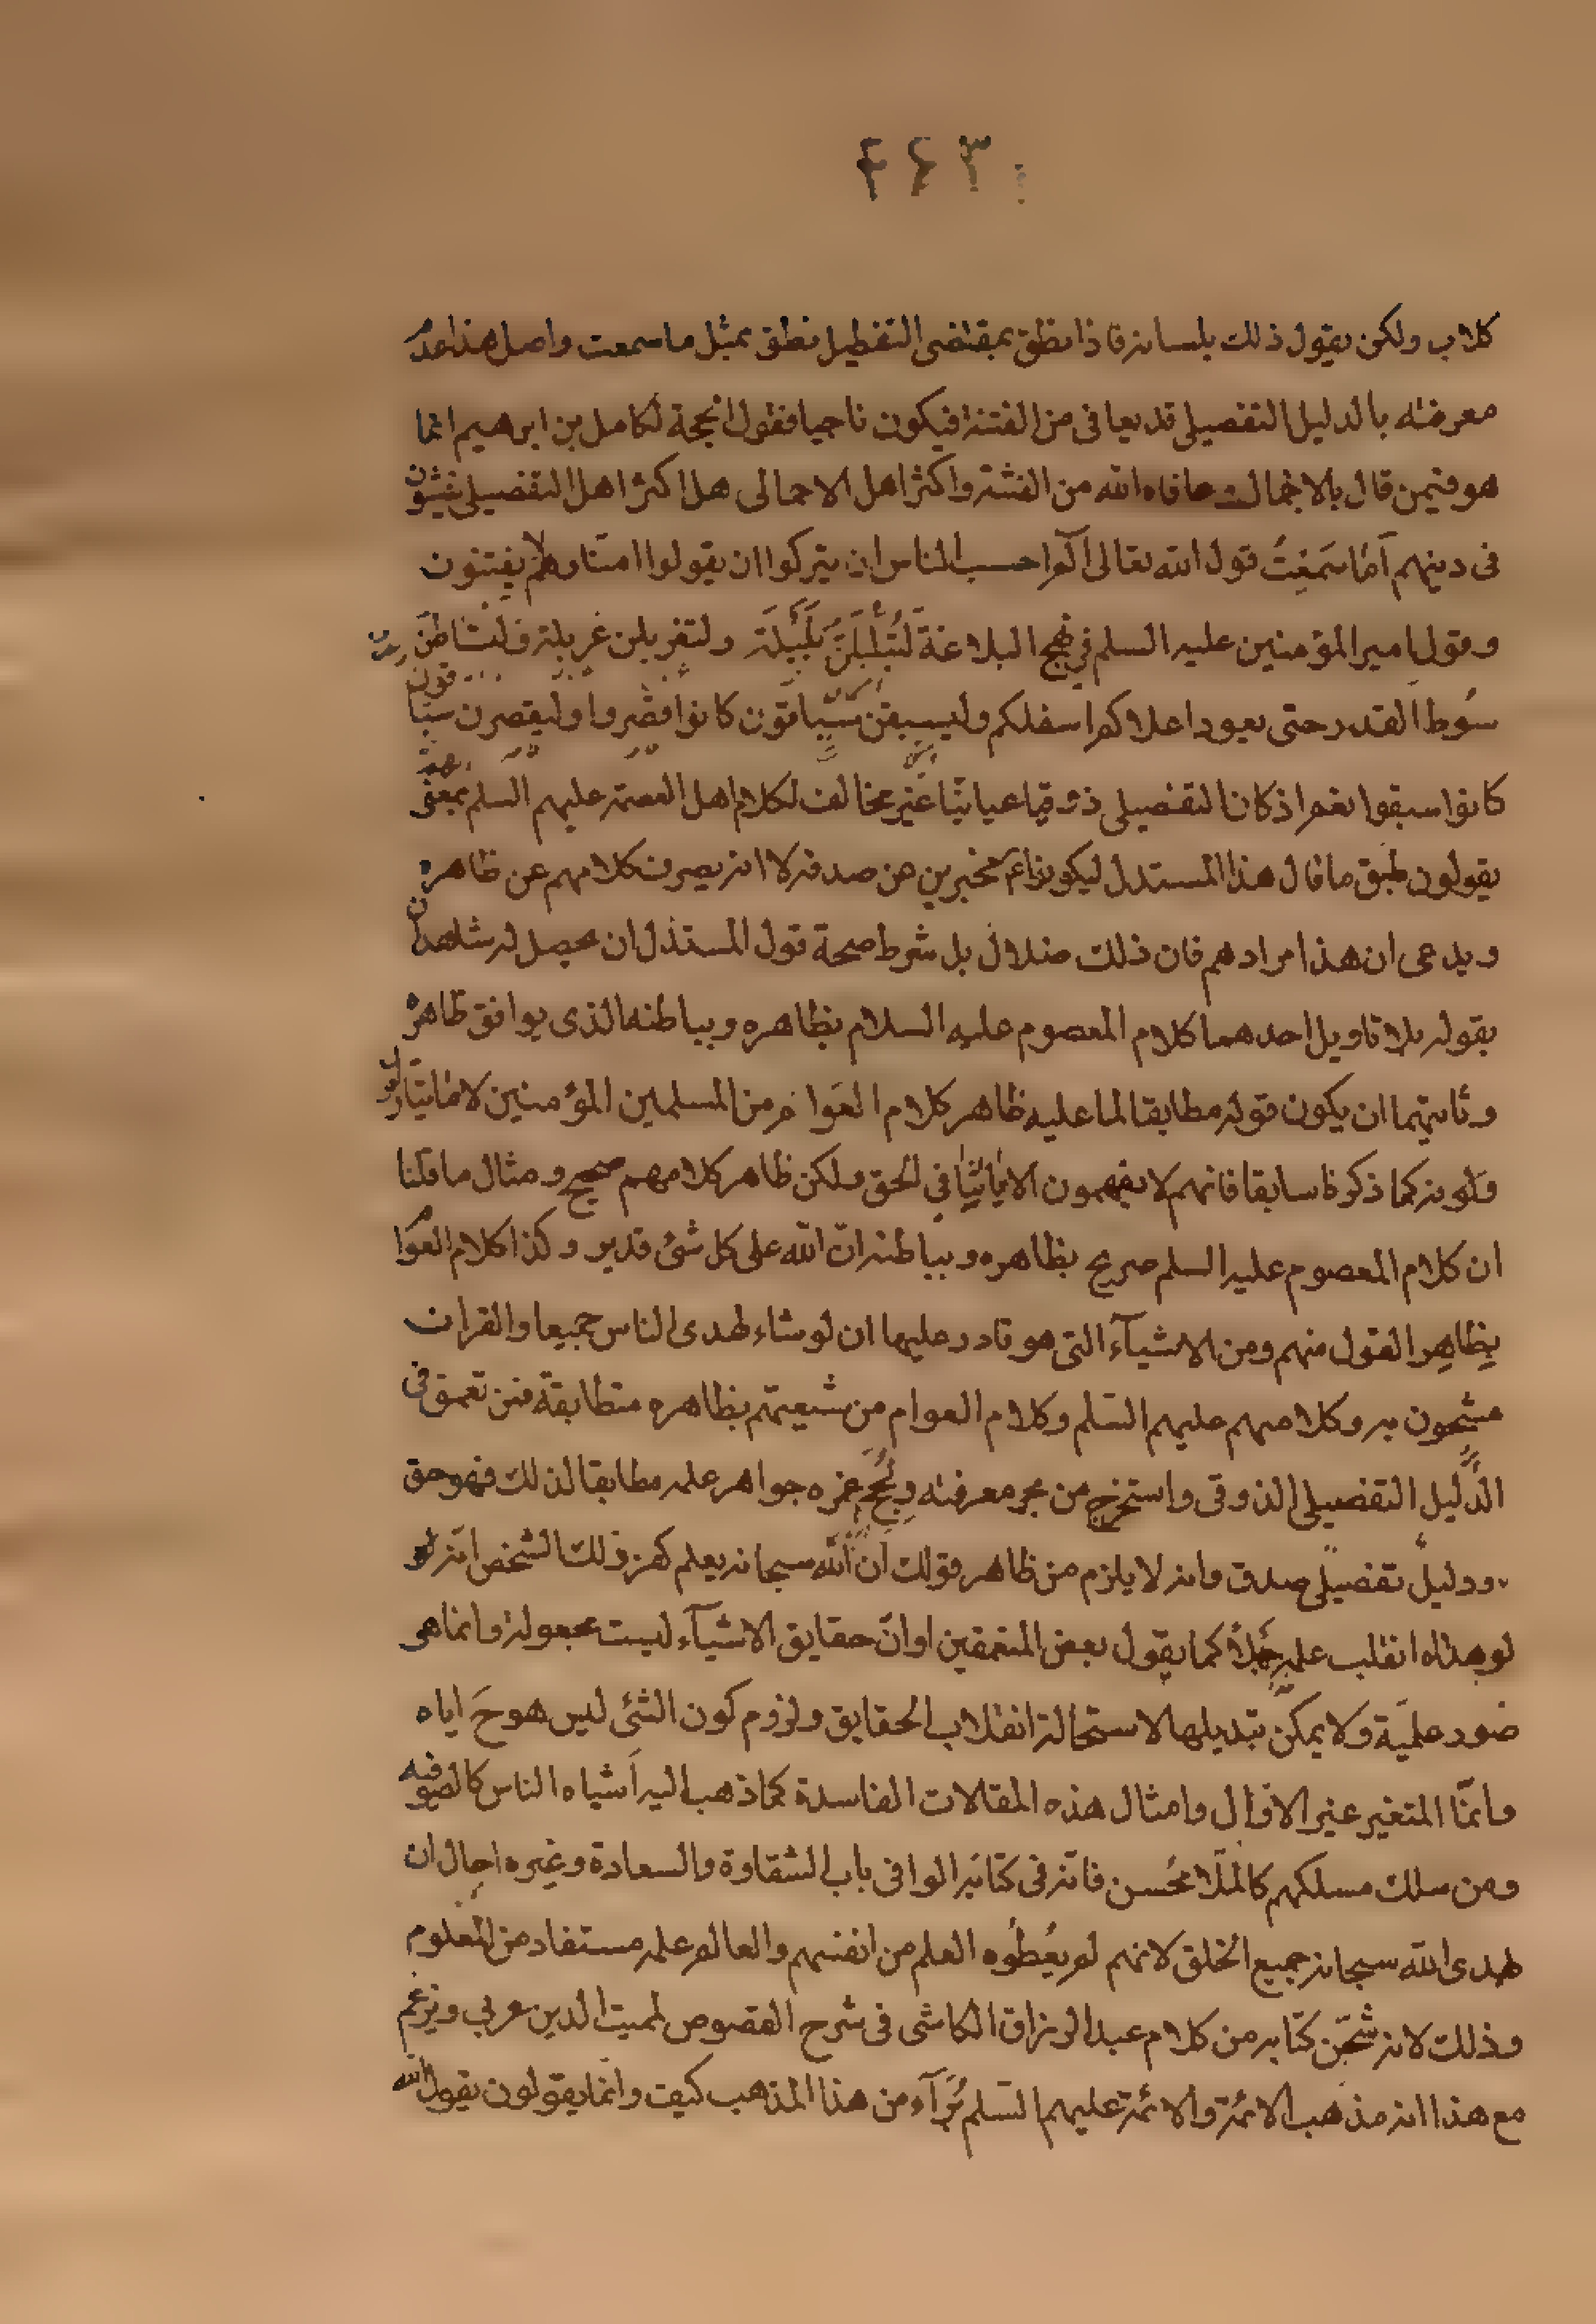 ۴۶۳
كلاب ولكن يقول ذلك بلسانه فاذا نطق بمقتضى التفصيل نطق بمثل ما سمعت واصل هذا عدم
معرفته بالدليل التفصيلى قد يعافى من الفتنة فيكون ناجيا فقول الحجة لكامل بن ابرهيم انما
هو فيمن قال بالاجمال وعافاه الله من الفتنة واكثر اهل الاجمالى هل اكثر اهل التفصيلى يفتنون
فى دينهم اَمٰا سَمِعْتُ قول الله تعالى الٓم احسب الناس ان يتركوا ان يقولوا امنّا وهم لا يفتنون
وقول امير المؤمنين عليه السلم في نهج البلاغة لَتُبَلْبَلُنَّ بَلْبَلَةً ولتغربلن غربلة ولتساطنّ
سَوط القدر حتى يعود اعلاكم اسفلكم وليسبقن سبّاقون كانوا قصّروا وليقصرن سبّاقون
كانوا سبقوا نعم اذ كان التفصيلى ذوقيّا عيانيّا غير مخالف لكلام اهل العصمة عليهم السلم بمعنى
يقولون طبق ما قال هذا المستدل ليكونوا مخبرين عن صدقه لا انه يصرف كلامهم عن ظاهره
ويدعى ان هذا مرادهم فان ذلك ضلال بل شرط صحة قول المستدل ان يحصل له شاهدان
بقوله بلا تاويل احدهما كلام المعصوم عليه السلام بظاهره وبباطنه الذى يوافق ظاهره
وثانيهما ان يكون قوله مطابقا لما عليه ظاهر كلام العوام من المسلمين المؤمنين لا ما تبادر
قلوبهم كما ذكرنا سابقا فانهم لا يفهمون في الحق ولكن ظاهر كلامهم صحيح ومثال ما قلنا
ان كلام المعصوم عليه السلم صريح بظاهره وبباطنه انّ الله على كل شئ قدير وكذا كلام العوام
بِظاهِرِ القول منهم ومن الاشيآء التى هو قادر عليها ان لو شاء لهدى الناس جميعا والقران
مشحون به وكلامهم عليهم السّلم وكلام العوام من شيعتهم بظاهره متطابقة فمن تعمق فى
الدّليل التفصيلى الذوقى واستخرج من بحر معرفته ولجّ جواهر علمه مطابقا لذلك فهو حق
ودليل تفصيلى صدق وانه لا يلزم من ظاهر قولك انّ الله سبحانه يعلم كفر ذلك الشخص انّه لو
لو هداه انقلب علمه جهلا كما يقول بعض المتعمقين او انّ حقايق الاشيآء ليست مجعولة وانما هى
صور علميّة ولا يمكن تبديلها لاستحالة انقلاب الحقايق ولزوم كون الشئ ليس هو حَ اياه
وانمّا المتغير غير الاوّل وامثال هذه المقالات الفاسدة كما ذهب اليه اَشباه الناس كالصوفيه
ومن سلك مسلكهم كالملّا محُسن فانّه فى كتابه الوافى باب الشقاوة والسعادة وغيره احال ان
يهدى الله سبحانه جميع الخلق لانهم لم يُعْطُوه العلم من انفسهم والعالم علمه مستفاد من المعلوم
وذلك لانه شحّن كتابه من كلام عبد الرزاق الكاشى فى شرح الفصوص لمميت الدين عربى ويزعم
مع هذا انه مذهب الائمة والائمة عليهم السّلم بُرَآء من هذا المذهب كيف وانّما يقولون بقول الله